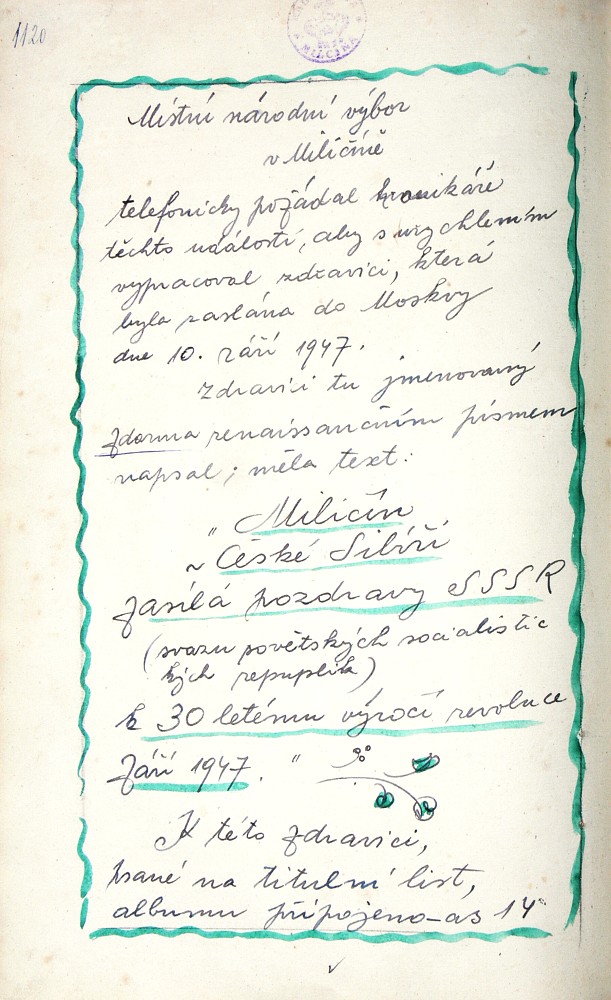 1120
MILČÍNĚ
Místní národní výbor
v Miličíně
telefonicky požádal kronikáře
těchto událostí, aby s urychlením
vypracoval zdravici, která
byla zaslána do Moskvy
dne 10. září 1947.
Zdravici tu jmenovaný
zdarma renaissančním písmem
napsal; měla text:
"Miličín
v České Sibíři
zasílá pozdravy SSSR
(svazu sovětských socialistic
kých repuplik)
k 30 letému výročí revoluce
Září 1947. "
K této zdravici,
psané na titulní list,
albumu připojeno-as 14